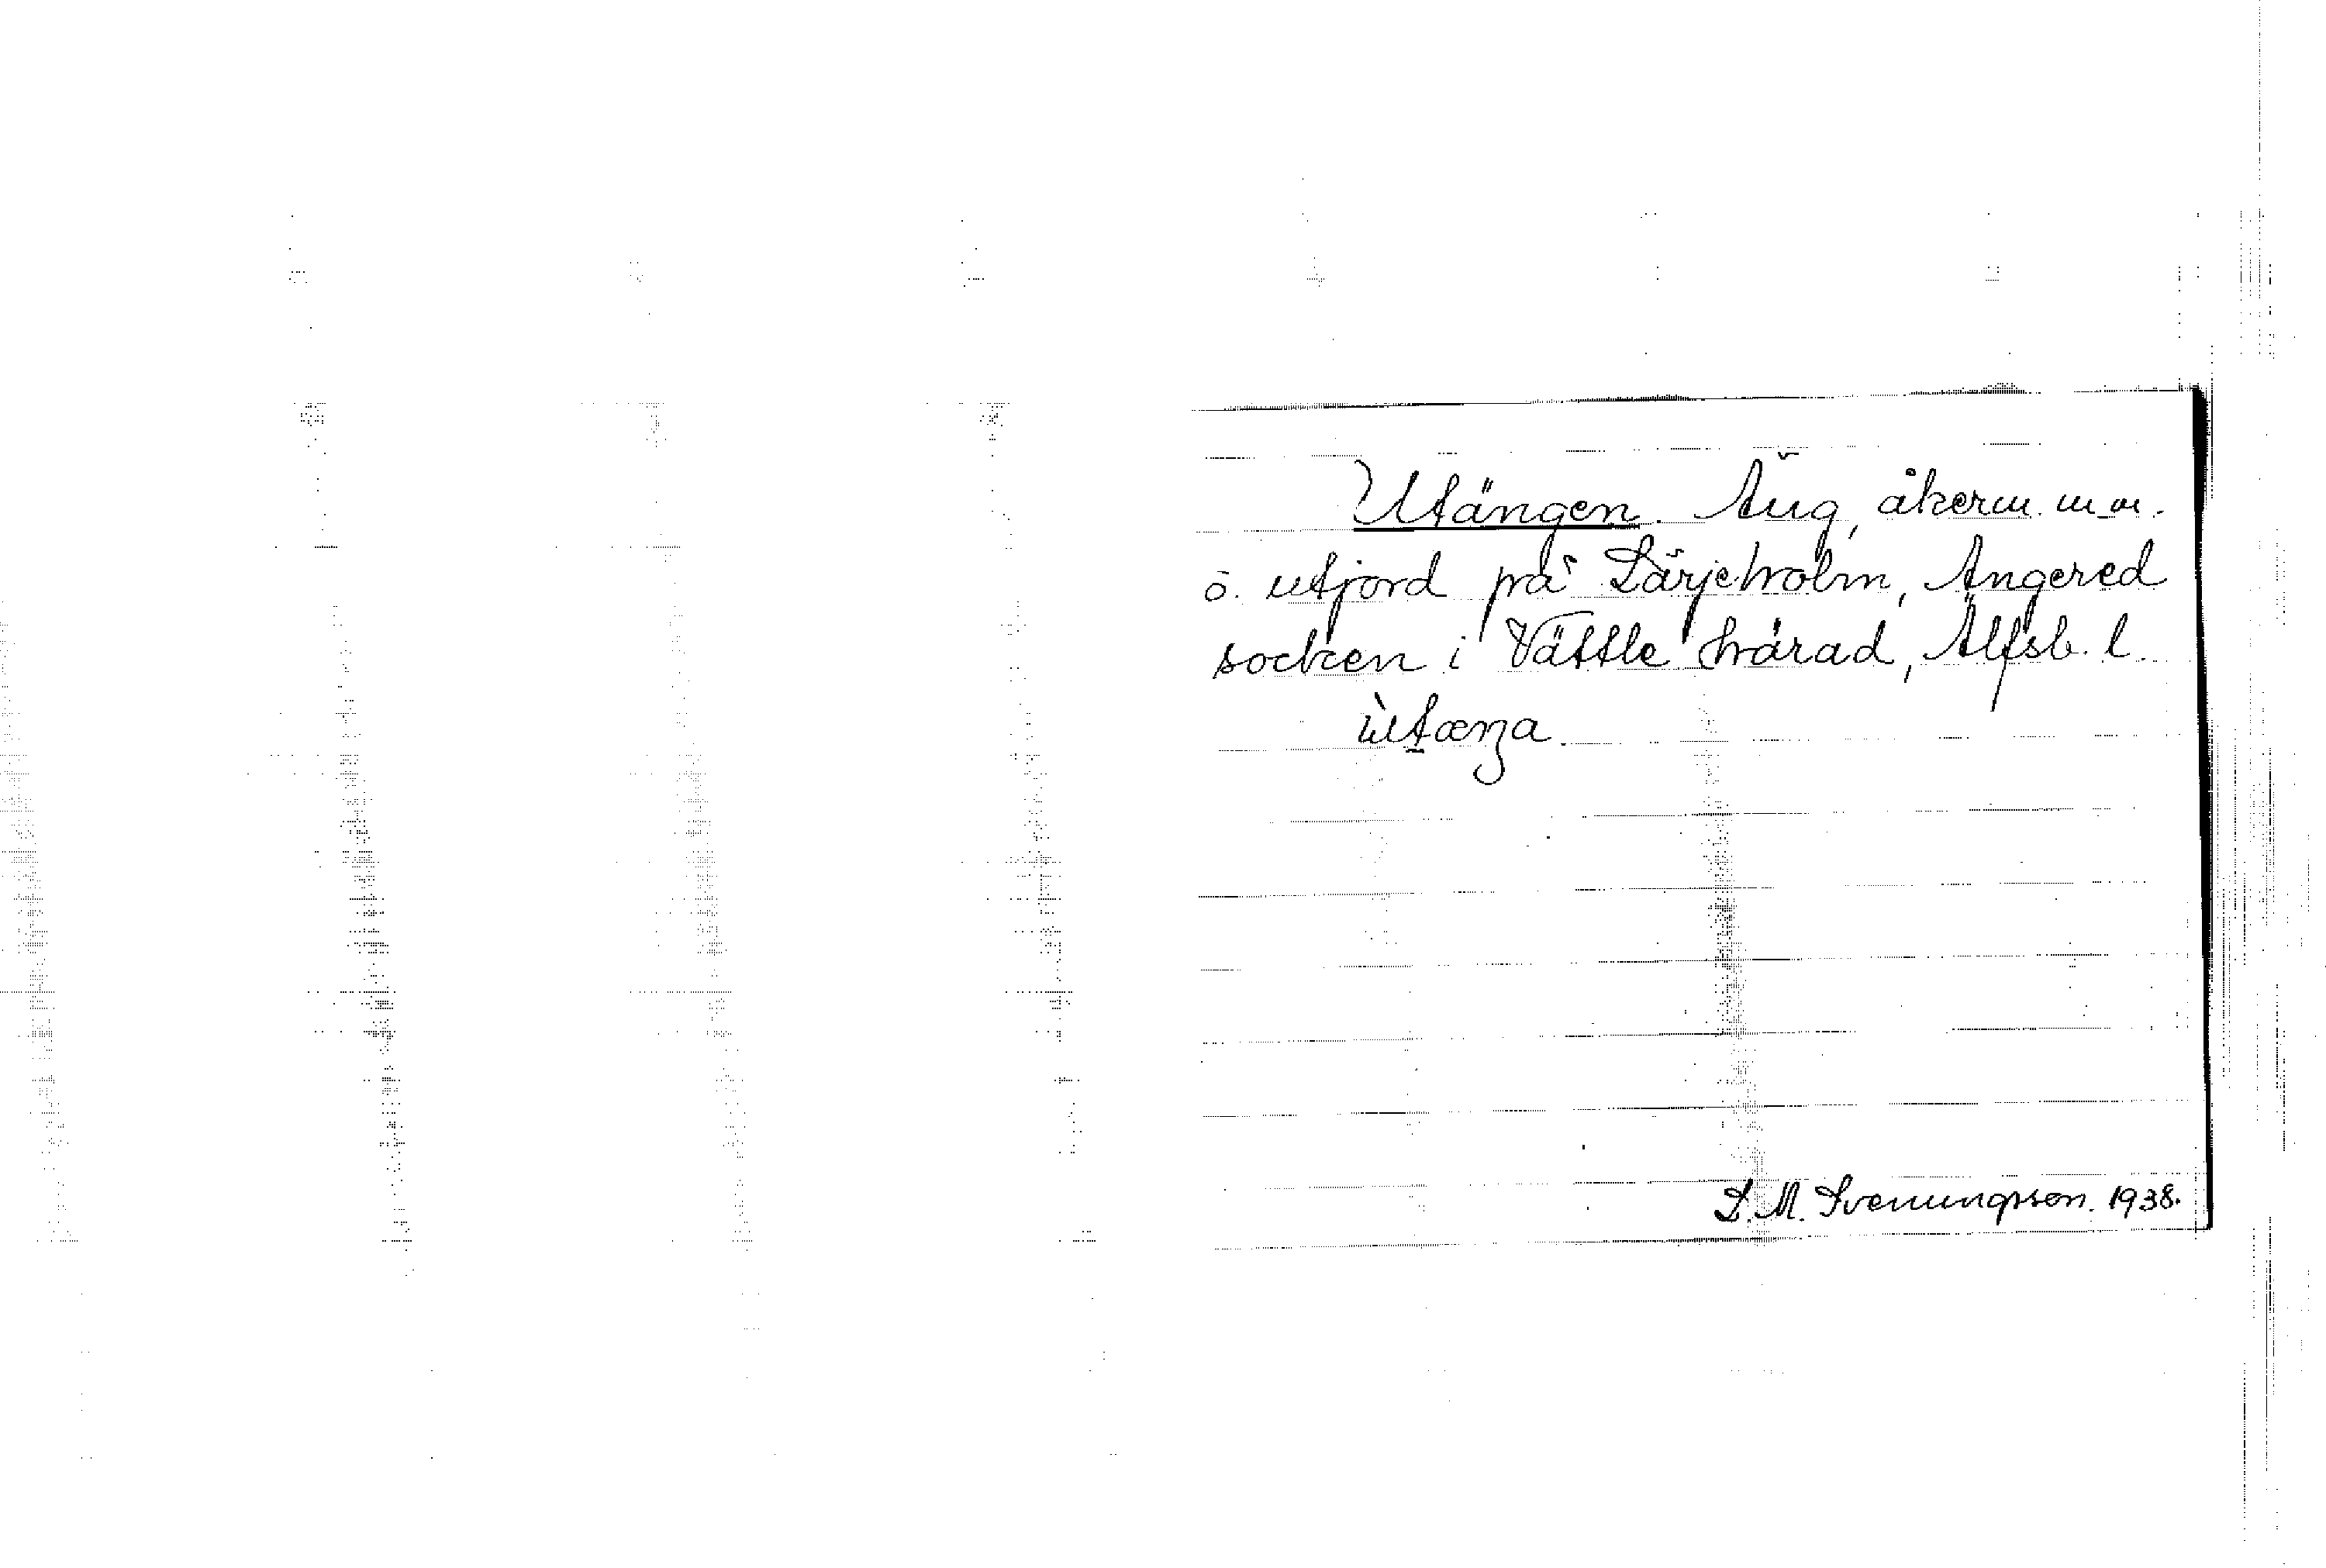 Utängen. Äng, åkerm. m.m.
o. utjord på Lärjeholm, Angered
socken i Vättle härad, Älfsb. l.
ùtæŋa
S. M. Svenungsson. 1938.